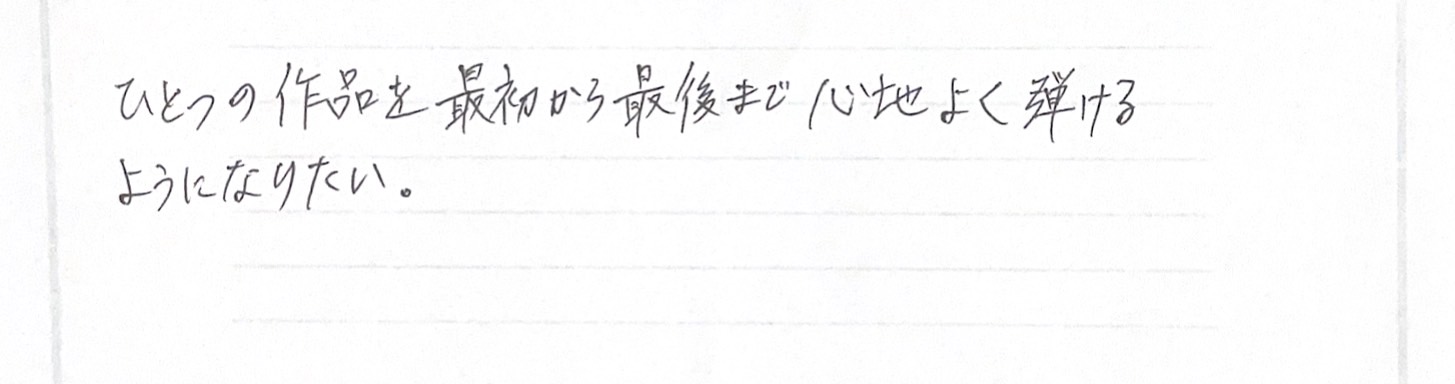 ひとつの作品を最初から最後まで心地よく弾ける
ようになりたい。